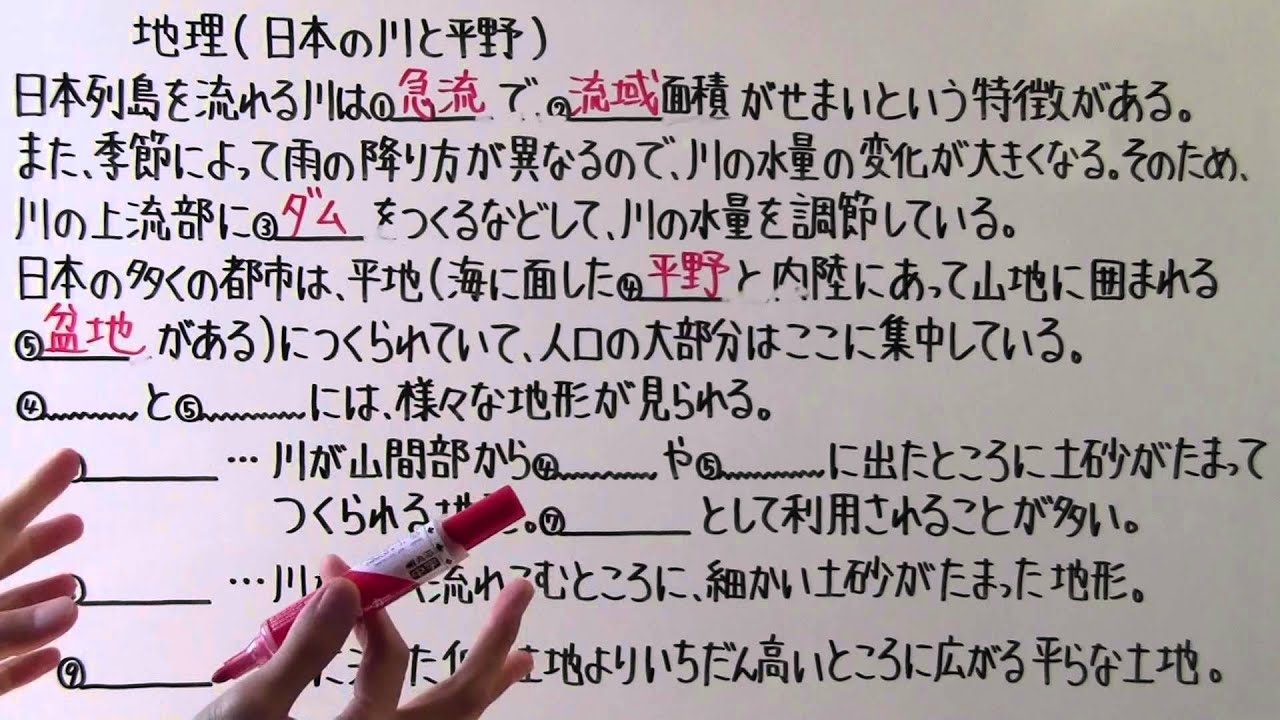 地理(日本の川と平野)
日本列島を流れる川は①急流で、②流域面積がせまいという特徴がある。
また、季節によって雨の降り方が異なるので、川の水量の変化が大きくなる。そのため、
川の上流部に③ダムをつくるなどして、川の水量を調節している。
日本の多くの都市は、平地(海に面した④平野と内陸にあって山地に囲まれる
⑤盆地がある)につくられていて、人口の大部分はここに集中している。
④と⑤には、様々な地形が見られる。
…川が山間部から④や⑤に出たところに土砂がたまって
つくられる地。⑦として利用されることが多い。
…川流れこむところに、細かい土砂がたまった地形。
⑨た土地よりいちだん高いところに広がる平らな土地。